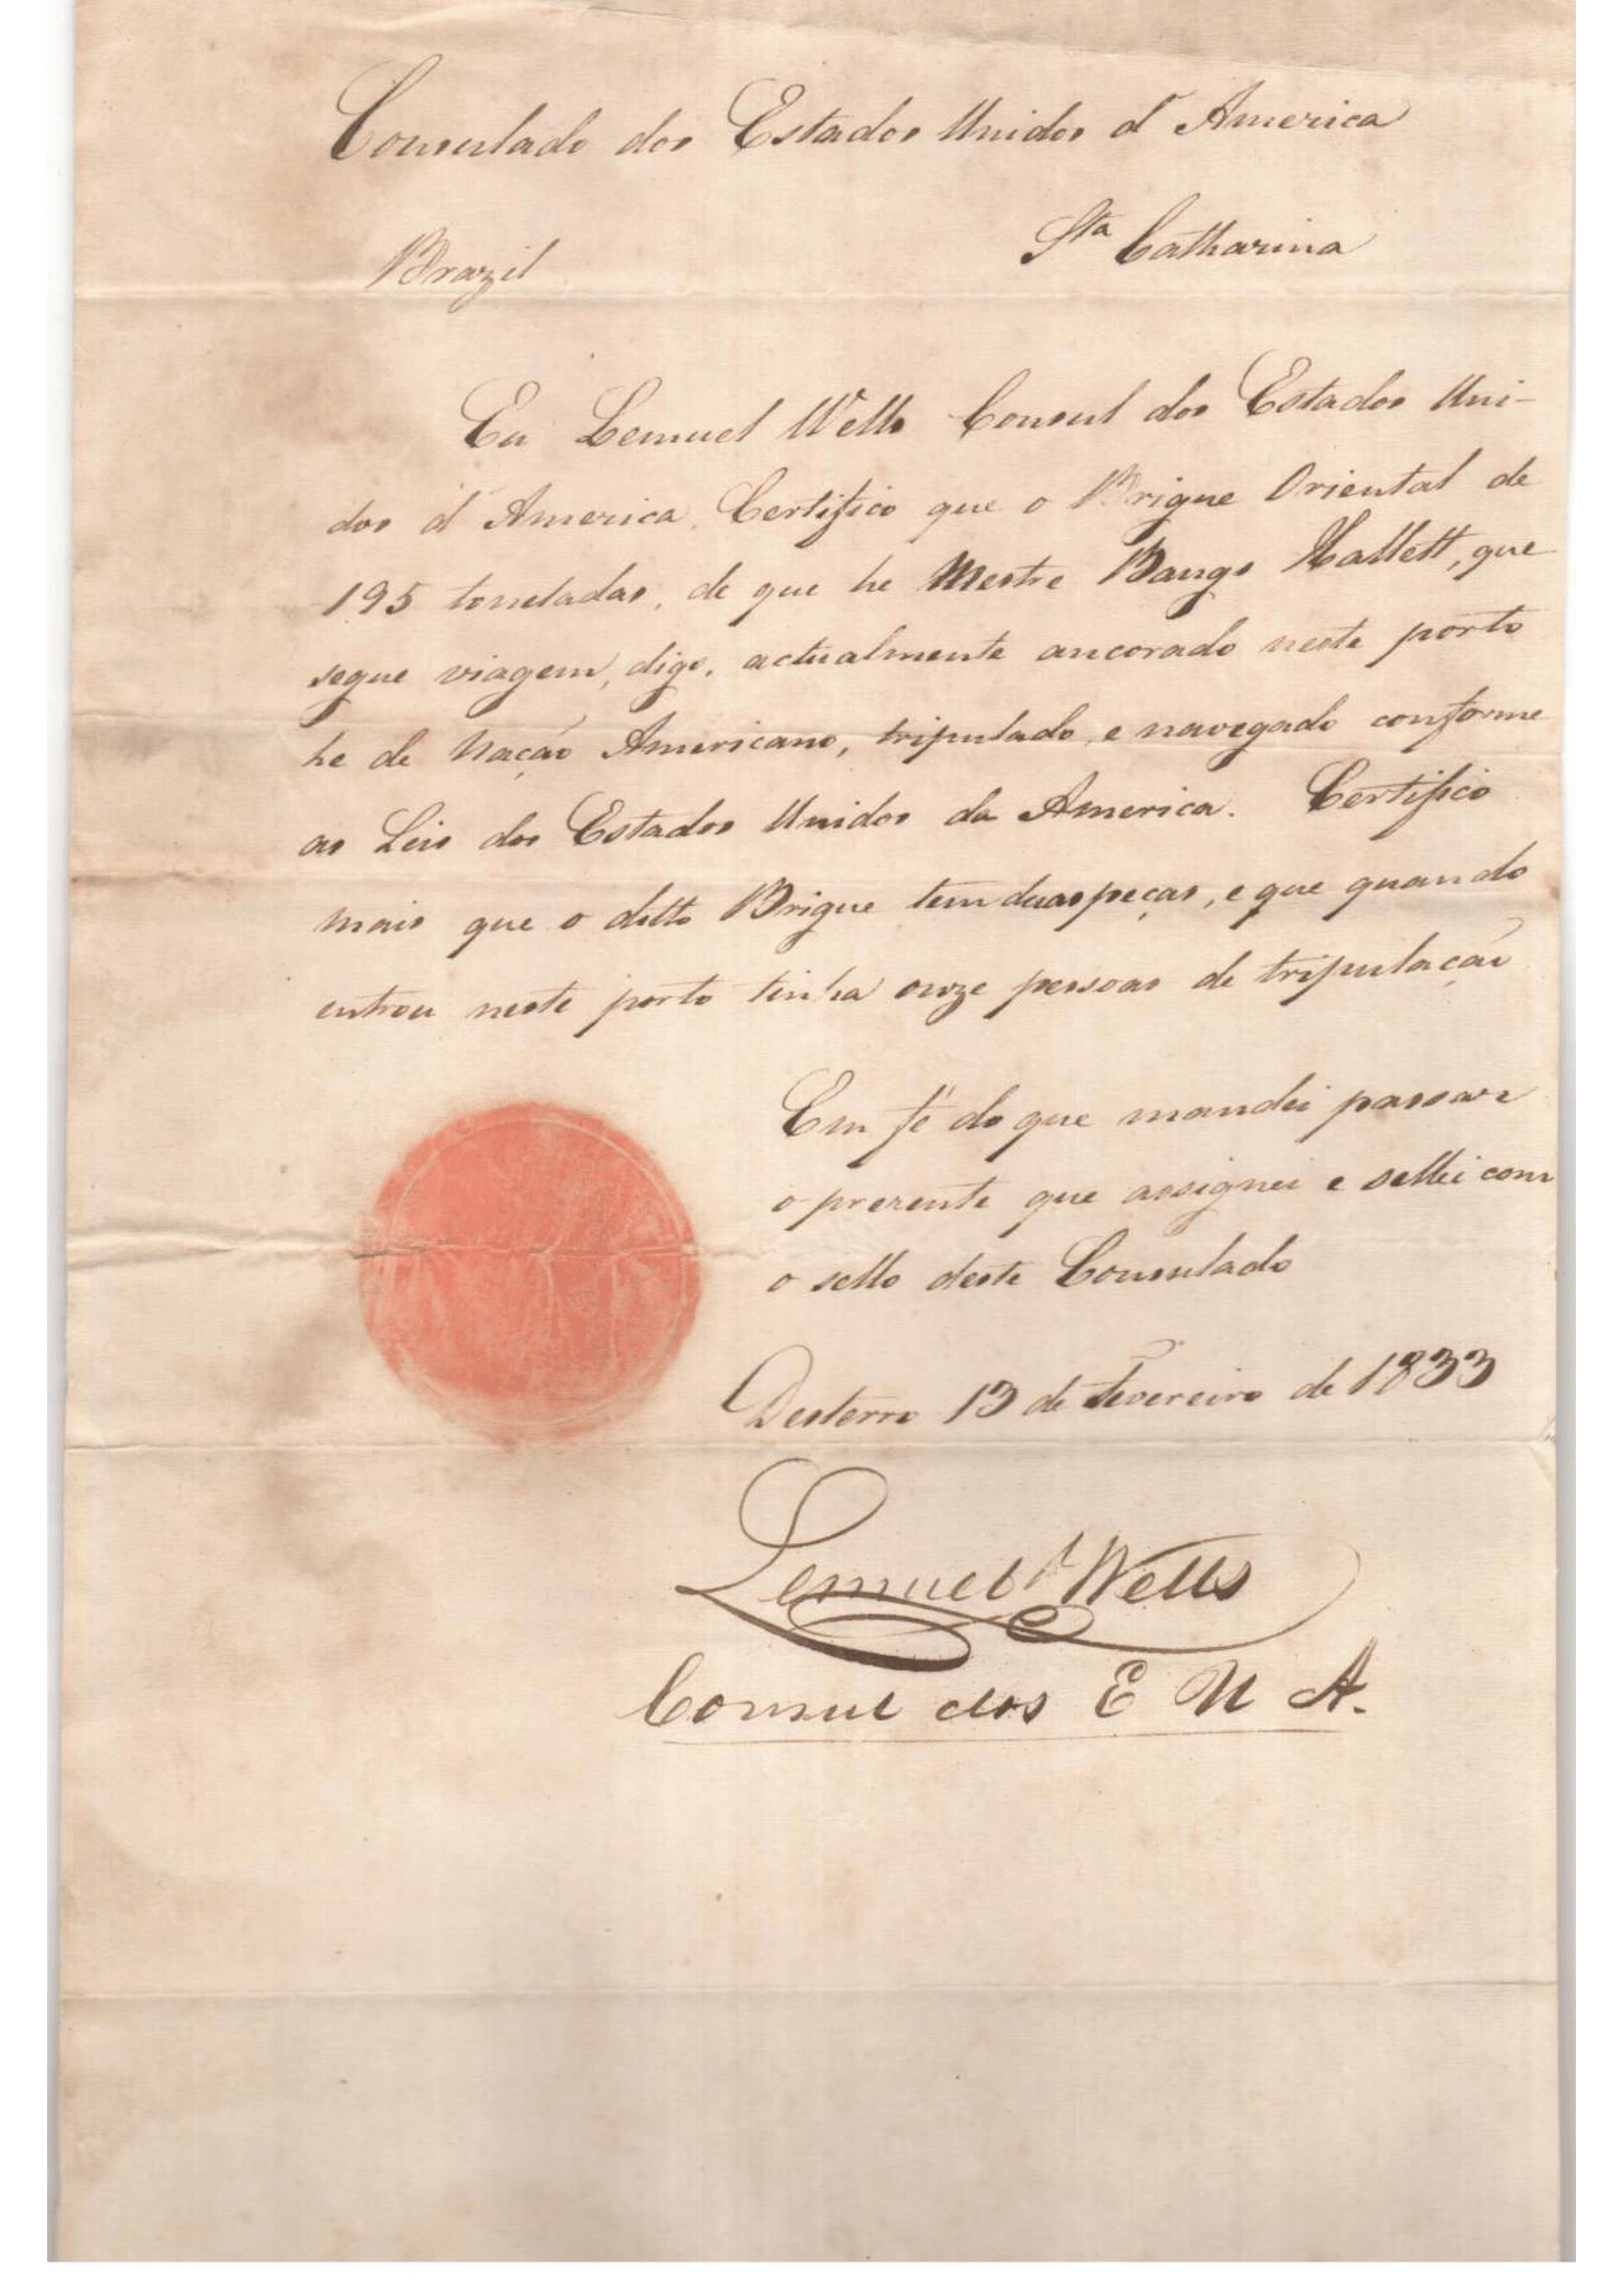 Consulado dos Estados Unidos d'America
Brazil Sta Catharina
Eu Lemuel Wells Consul dos Estados Uni-
dos d'America, Certifico que o Brigue Oriental de
195 toneladas, de que he Mestre Bangs Hallett, que
segue viagem, digo, actualmente ancorado neste porto
he de Nação Americano, tripulado, e navegado conforme
as Leis dos Estados Unidos da America. Certifico
mais que o ditto Brigue tem duas peças, e que quando
entrou neste porto tinha onze pessoas de tripulação
Em fé do que mandei passar
o prezente que assignei e sellei com
o sello deste Consulado
Desterro 13 de Fevereiro de 1833
Lemuel Wells
Consul dos E U A.